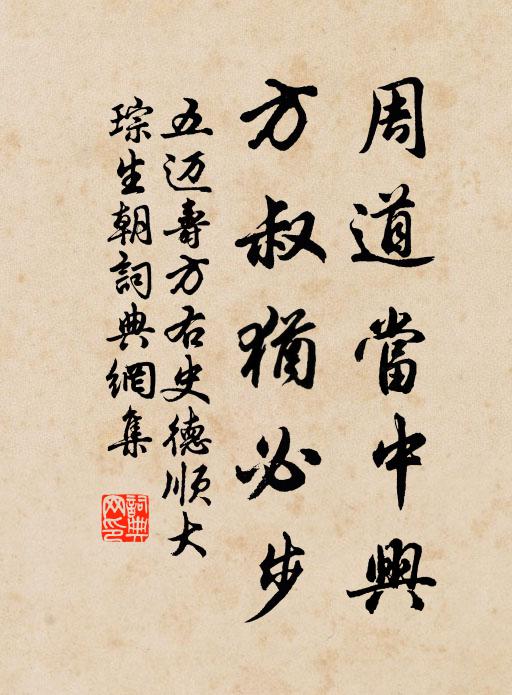 周道當中興
方叔猶必步
五迈壽方右史德順大
琮生朝詞典網集
詞典網印